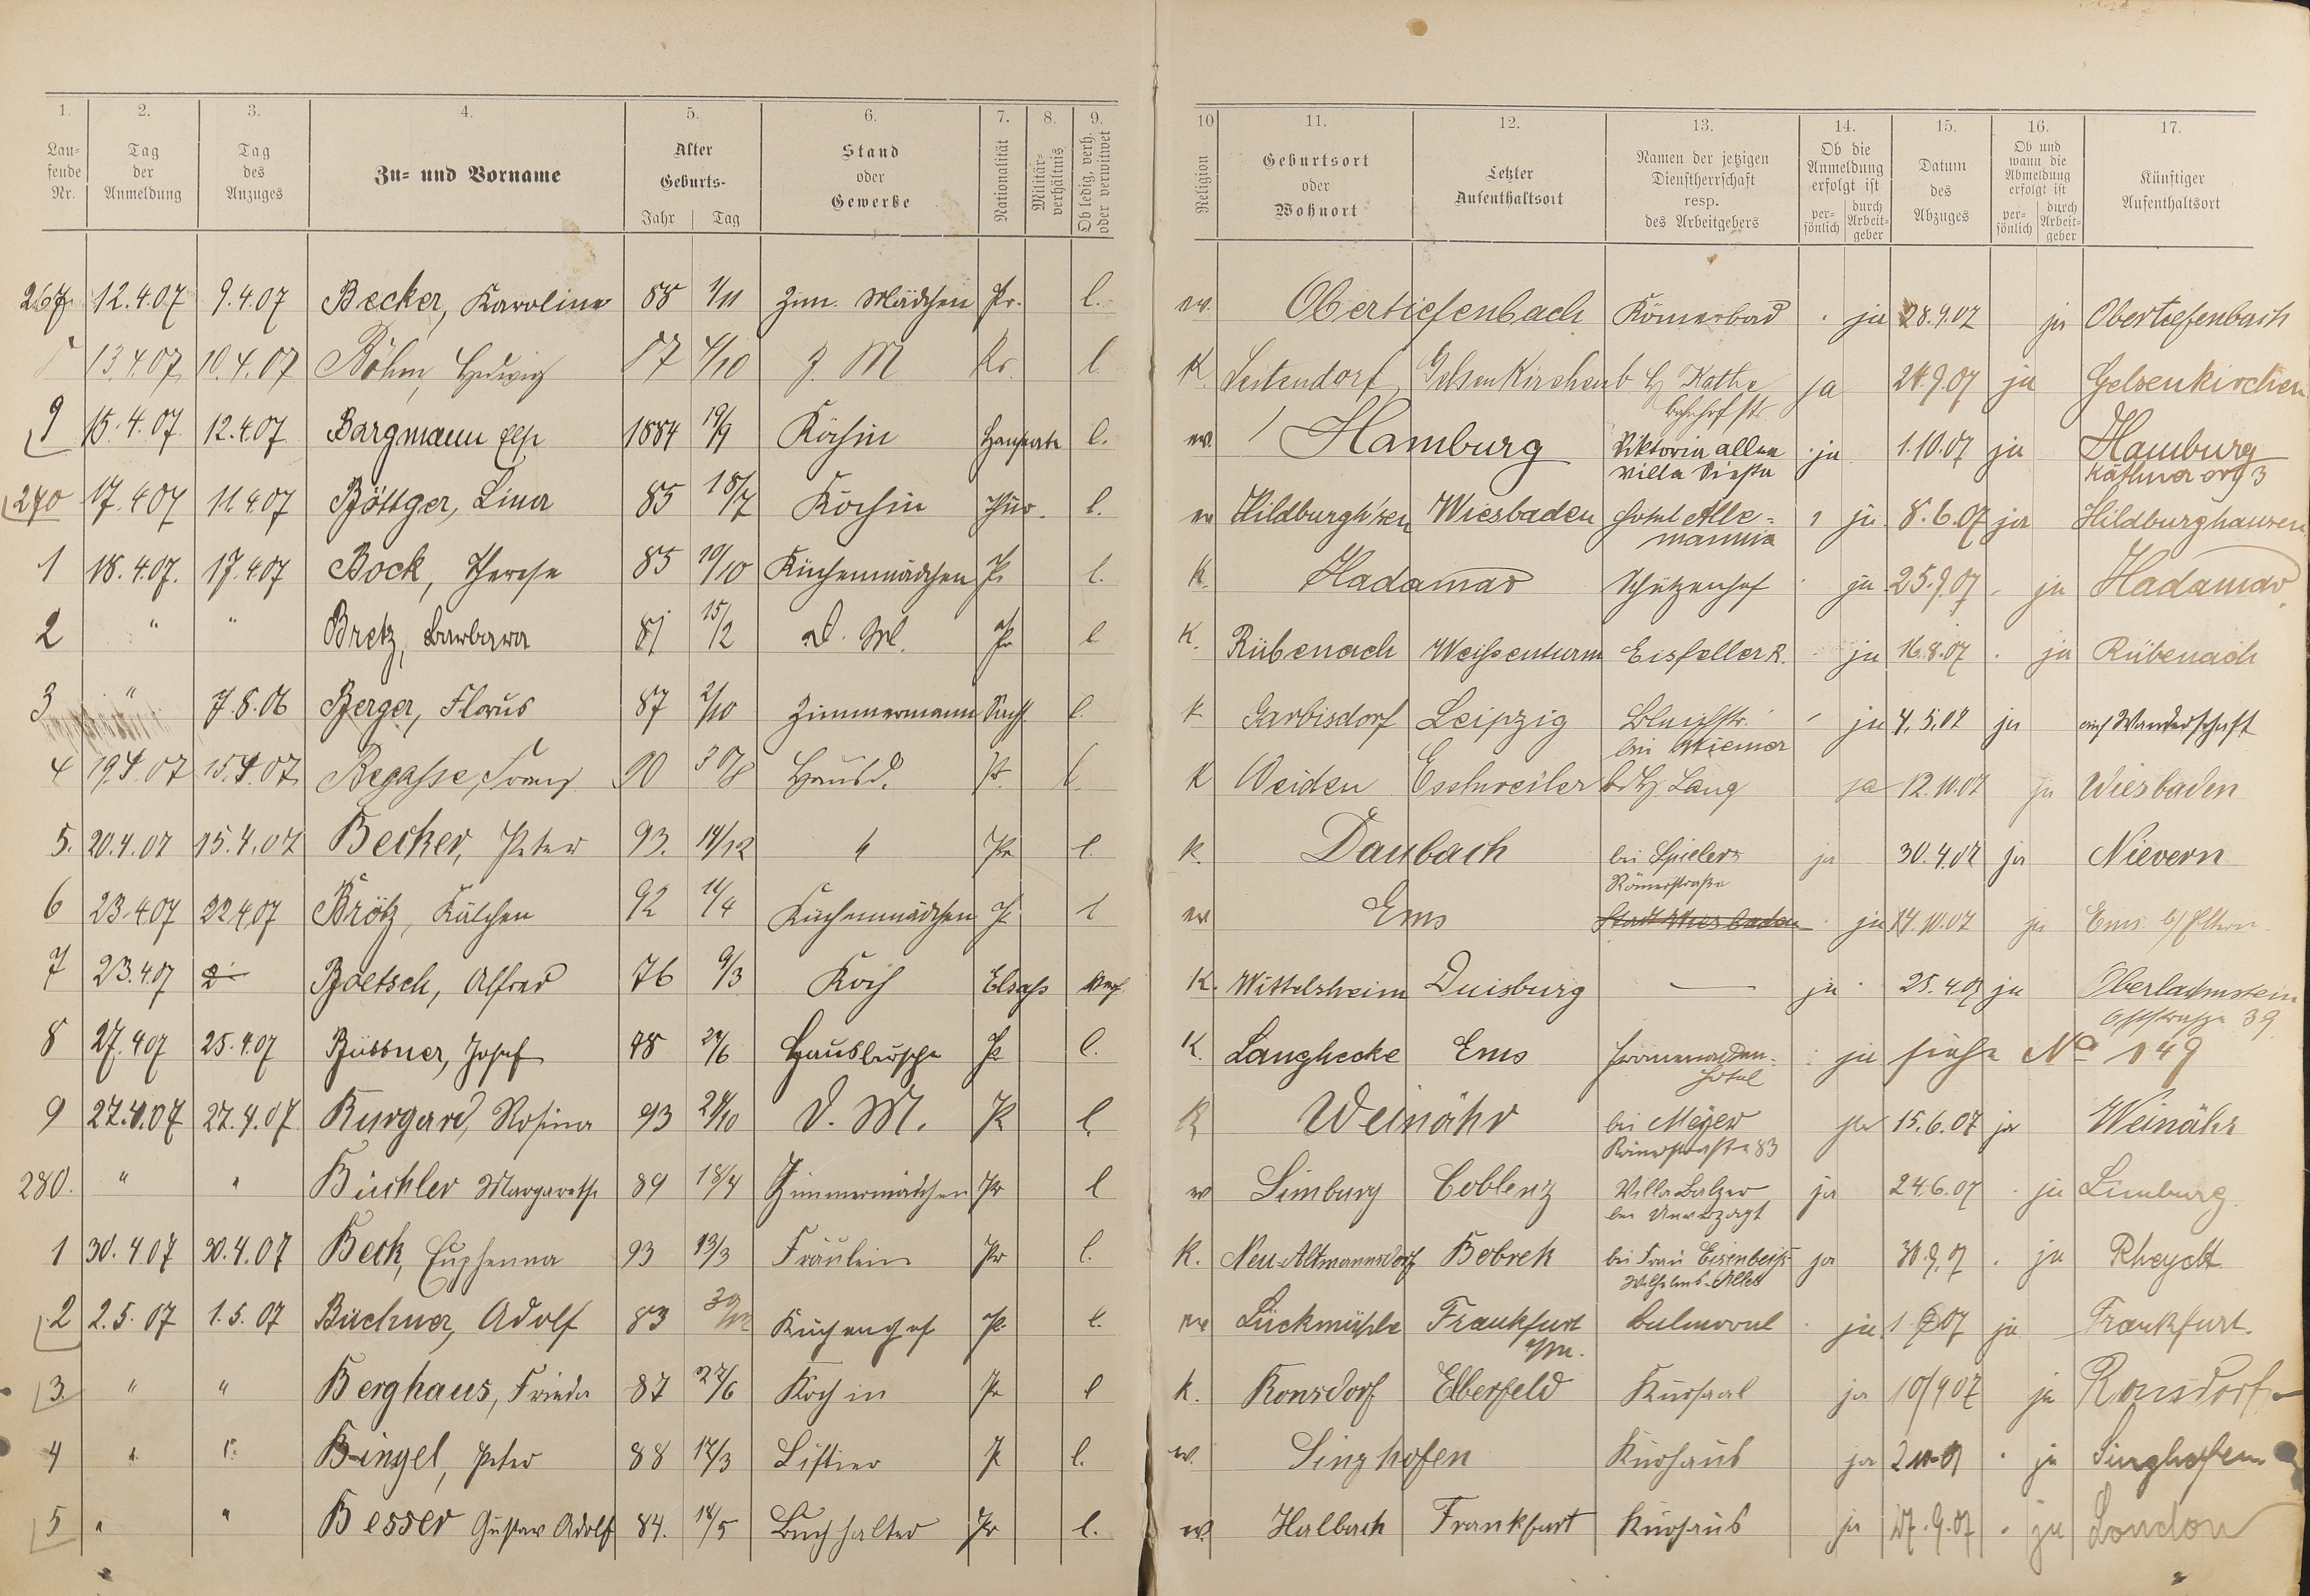 1. 2. 3. 4. 5. 6. 7. 8. 9.
Lau-
fende
Nr.
Tag
der
Anmeldung
Tag
des
Anzuges
Zu- und Vorname
Alter
Geburts-
Jahr Tag
Stand
oder
Gewerbe
Nationalität
Militär-
verhältnis
Ob ledig, verh.
oder verwitwet
10 11. 12. 13. 14. 15. 16. 17.
Religion
Geburtsort
oder
Wohnort
Letzter
Aufenthaltsort
Namen der jetzigen
Dienstherrschaft
resp.
des Arbeitgebers
Ob die
Anmeldung
erfolgt ist
per-
sönlich
durch
Arbeit-
geber
Datum
des
Abzuges
Ob und
wann die
Abmeldung
erfolgt ist
per-
sönlich
durch
Arbeit-
geber
Künftiger
Aufenthaltsort
267 12.4.07 9.4.07 Becker, Karoline 88 1/11 Zim. Mädchen Pr. l. ev. Obertiefenbach Römerbad ja 28.9.07 ja Obertiefenbach
13.4.07 10.4.07 Böhm, Hedwig 87 4/10 Z. M Pr. l K Gelsenkirchen b H Kathe ja 24.9.07 ja Gelsenkirchen
Bahnhofstr
9 15.4.07 12.4.07 Bargmann Else 1884 19/9 Köchin l. ev. Hamburg Viktoria allee ja 1.10.07 ja Hamburg
Villa
270 17.4.07 11.4.07 Böttger, Lina 85 18/7 Köchin Thür. l. ev Hildburgh'sen Wiesbaden Hotel Alle= ja 8.6.07 ja Hildburghausen
mannia
1 18.4.07. 17.4.07 Bock, Therese 85 10/10 Küchenmädchen Pr l. K. Hadamar Schützenhof ja 25.9.07 ja Hadamar
2 " " Bretz, Barbara 81 15/2 D. M. Pr l K. Rübenach Weißenturm Eisfeller R. ja 16.8.07 ja Rübenach
3 " 7.8.06 Berger, Florus 87 2/10 Zimmermann Sachs l. K Garbisdorf Leipzig ja 4.5.07 ja auf Wanderschaft
bei
4 19.4.07 15.4.07 Begasse, Franz 90 30/8 Hausd. Pr. l K Weiden Eschweiler Lang ja 12.10.07 ja Wiesbaden
5. 20.4.07 15.4.07 Becker, Peter 93. 14/12 " Pr l. K. Daubach bei Spielers ja 30.4.07 ja Nievern
Römerstraße
6 23.4.07 22.4.07 Brötz, Kätchen 92 11/4 Küchenmädchen Pr l ev Ems Stadt Wiesbaden ja 14.10.07 ja Ems b/ Eltern
7 23.4.07 Boetsch, Alfred 76 9/3 Koch Elsass verh. K. Wittelsheim Duisburg — ja 25.4.07 ja Oberlahnstein
39
8 27.4.07 25.4.07 Büssner, Josef 48 24/6 Hausbursche Pr l. K. Langhecke Ems Promenaden- ja siehe No 149
Hotel
9 27.4.07 27.4.07 Burgard, Rosina 93 24/10 D. M. Pr l. K Weinähr bei Meyer ja 15.6.07 ja Weinähr
Römerstraße 83
280. " " Büchler Margarethe 89 18/4 Zimmermädchen Pr l ev Limburg Coblenz Villa Balzer ja 24.6.07 ja Limburg
bei Unverzagt
1 30.4.07 30.4.07 Beck, Euphemia 93 13/3 Fräulein Pr l. K. Neu-Altmannsdorf Bobrek bei Frau Eisenbeiß ja 30.9.07 ja Rheydt
Wilhelms-Allee
2 2.5.07 1.5.07 Büchner, Adolf 83 Küchenchef Pr l. ev Lückmühle Frankfurt ja ja Frankfurt.
a/m.
3 " " Berghaus, Frieda 87 27/6 Köchin Pr l K. Ronsdorf Elberfeld Kursaal ja 10/9 07 ja Ronsdorf
4 " " Bingel, Peter 88 17/3 Liftier Pr l. ev. Singhofen Kurhaus ja ja Singhofen
5 " " Besser Gustav Adolf 84. 18/5 Buchhalter Pr l. ev. Halbach Frankfurt Kurhaus ja 27.9.07 ja London